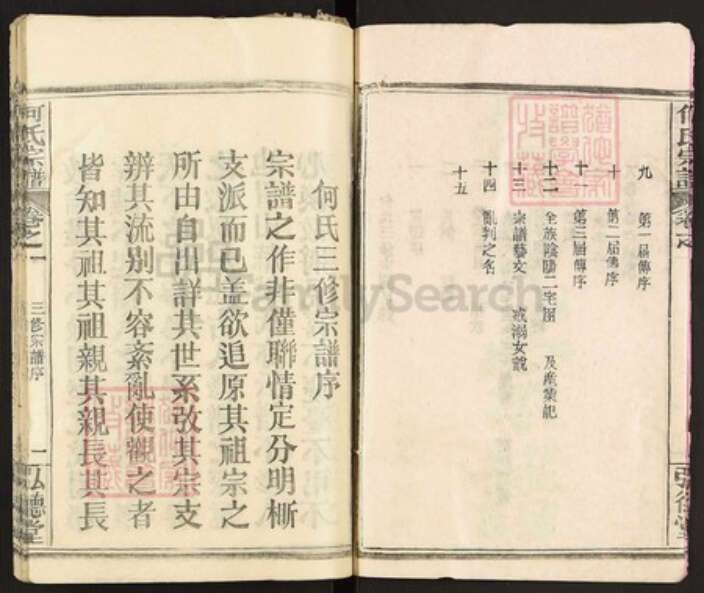 何氏宗譜
卷之
弘德堂
九 第一届傳序
十 第二届傳序
十一 第三届傳序
十二 全族陰陽二宅圖 及產業記
十三 宗譜藝文 戒溺女說
十四 亂刊之名
十五
何氏三修宗譜序
宗譜之作非僅聯情定分明
支派而已盖欲追原其祖宗之
所由自出詳其世系攷其宗支
辨其流别不容紊亂使觀之者
皆知其祖其祖親其親長其長
何氏宗譜
卷之一
三修宗譜序
一
弘德堂
FamilySearch